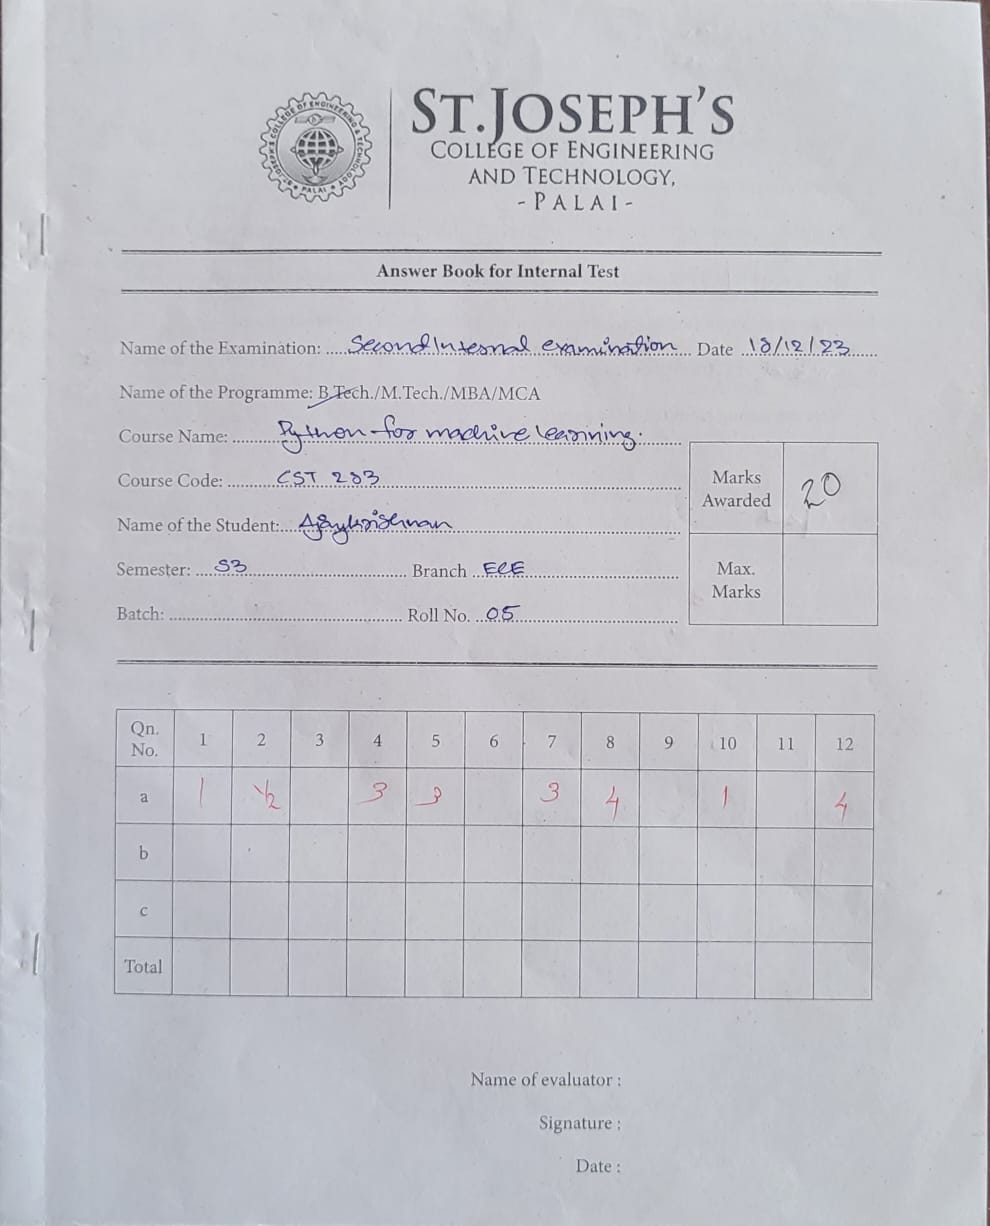 ST.JOSEPH'S
COLLEGE OF ENGINEERING
AND TECHNOLOGY,
- PALAI -
Answer Book for Internal Test
Name of the Examination: Second Internal examination Date 18/12/23
Name of the Programme: B.Tech./M.Tech./MBA/MCA
Course Name: Python for machine learning.
Course Code: CST 283
Marks Awarded 20
Name of the Student: Ajaykrishnan
Semester: S3 Branch ECE
Max. Marks
Batch: Roll No. 05
Qn. No. 1 2 3 4 5 6 7 8 9 10 11 12
a 1 1/2 3 3 3 4 1 4
b
c
Total
Name of evaluator :
Signature :
Date :